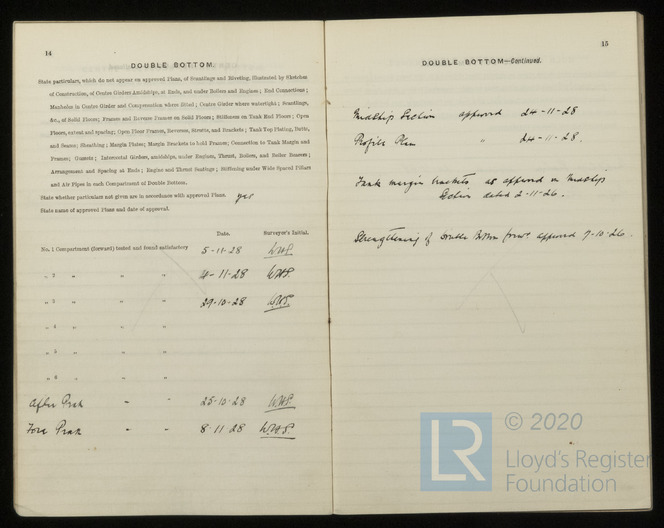 14
DOUBLE BOTTOM.
State particulars, which do not appear on approved Plans, of Scantlings and Riveting, illustrated by Sketches
of Construction, of Centre Girders Amidships, at Ends, and under Boilers and Engines; End Connections;
Manholes in Centre Girder and Compensation where fitted; Centre Girder where watertight; Scantlings,
&c., of Solid Floors; Frames and Reverse Frames on Solid Floors; Stiffeners on Tank End Floors; Open
Floors, extent and spacing; Open Floor Frames, Reverses, Struts, and Brackets; Tank Top Plating, Butts,
and Seams; Sheathing; Margin Plates; Margin Brackets to hold Frames; Connection to Tank Margin and
Frames; Gussets; Intercostal Girders, amidships, under Engines, Thrust, Boilers, and Boiler Bearers;
Arrangement and Spacing at Ends; Engine and Thrust Seatings; Stiffening under Wide Spaced Pillars
and Air Pipes in each Compartment of Double Bottom.
State whether particulars not given are in accordance with approved Plans. yes
State name of approved Plans and date of approval.
Date. Surveyor's Initial.
No. 1 Compartment (forward) tested and found satisfactory 5-11-28 W.H.S.
„ 2 „ „ „ 4-11-28 W.H.S.
„ 3 „ „ „ 29-10-28 W.H.S.
„ 4 „ „ „
„ 5 „ „ „
„ 6 „ „ „
After Peak " " 25-10-28 W.H.S.
Fore Peak " " 8-11-28 W.H.S.
15
DOUBLE BOTTOM—Continued.
Midship Section approved 24-11-28
Profile Plan " 24-11-28.
Tank margin brackets as approved on Midship
Section dated 2-11-26.
Strengthening of double bottom forwd approved 7-10-26.
LR
© 2020
Lloyd's Register
Foundation